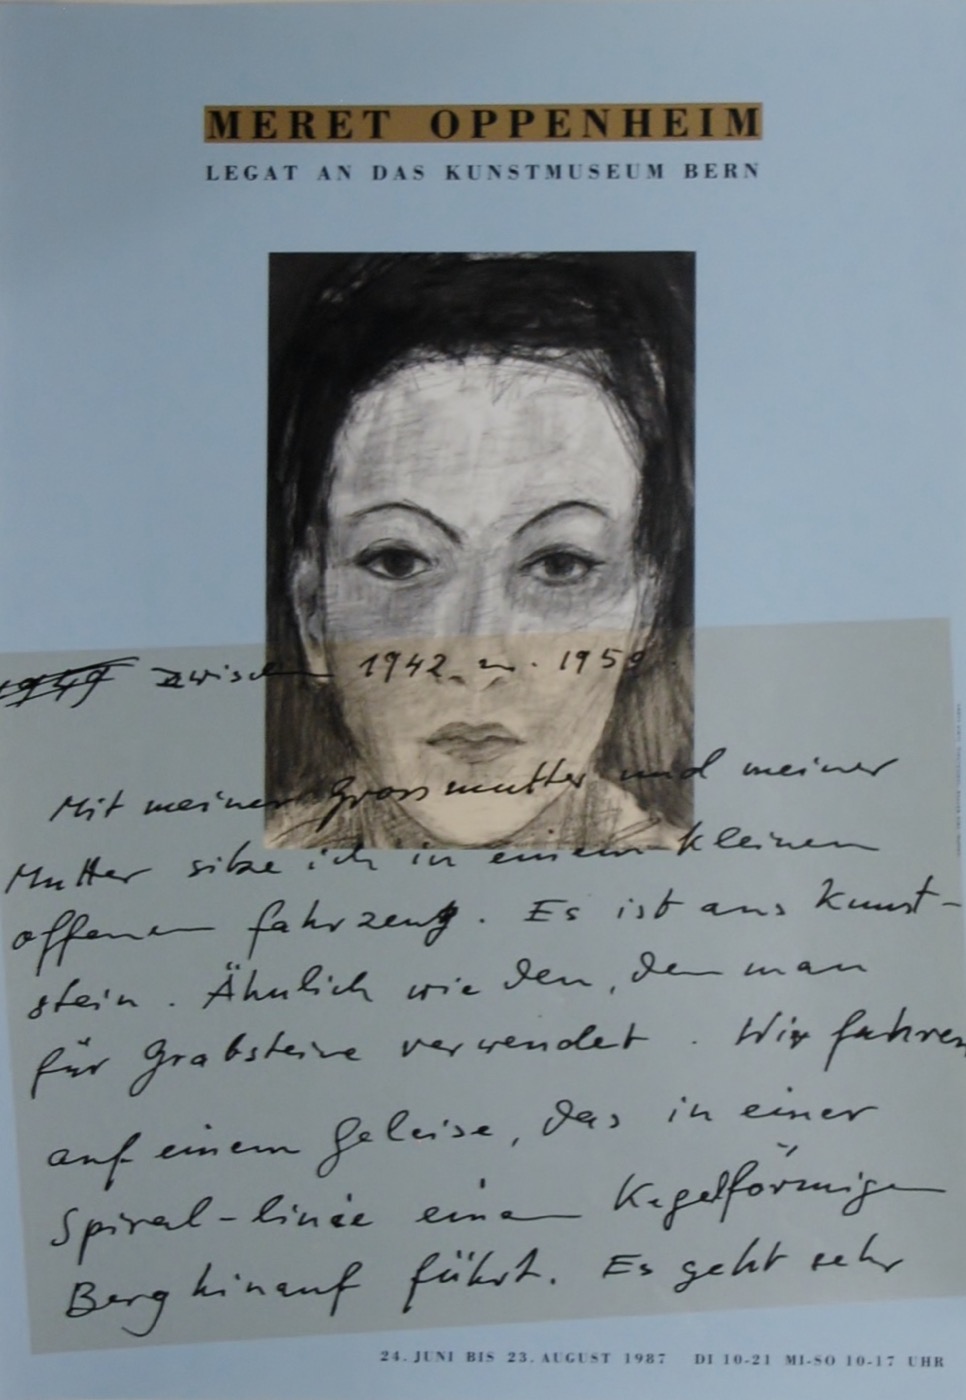 MERET OPPENHEIM
LEGAT AN DAS KUNSTMUSEUM BERN
1949 zwischen 1942 u. 1950
Mit meiner Grossmutter und meiner
Mutter sitze ich in einem kleinen
offenen Fahrzeug. Es ist aus Kunst-
stein. Ähnlich wie den, den man
für Grabsteine verwendet. Wir fahren
auf einem Geleise, das in einer
Spiral-linie einen Kegelförmigen
Berg hinauf führt. Es geht sehr
24. JUNI BIS 23. AUGUST 1987 DI 10-21 MI-SO 10-17 UHR